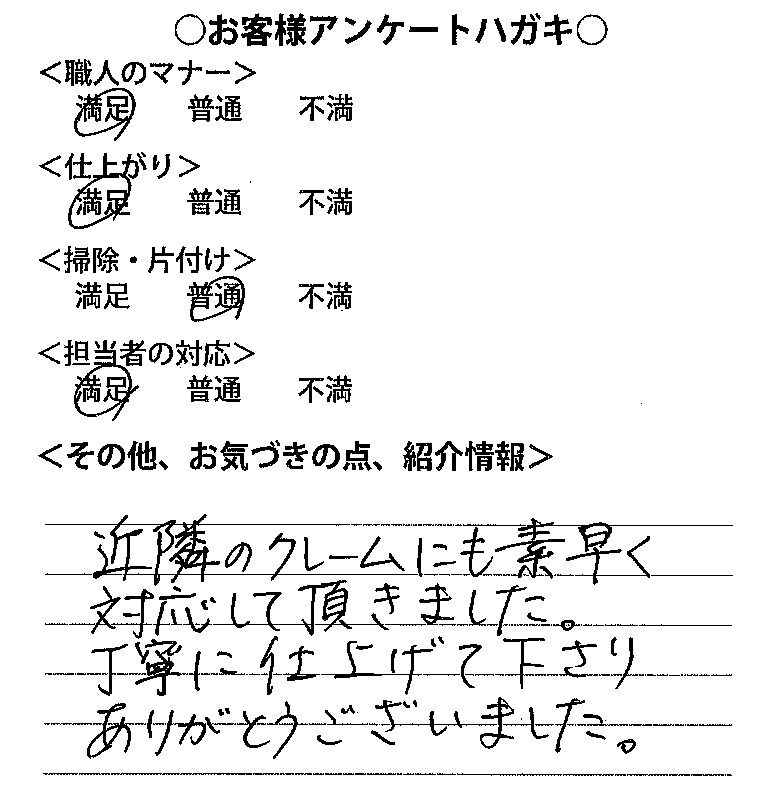 ○お客様アンケートハガキ○
＜職人のマナー＞
満足 普通 不満
＜仕上がり＞
満足 普通 不満
＜掃除・片付け＞
満足 普通 不満
＜担当者の対応＞
満足 普通 不満
＜その他、お気づきの点、紹介情報＞
近隣のクレームにも素早く
対応して頂きました。
丁寧に仕上げて下さり
ありがとうございました。